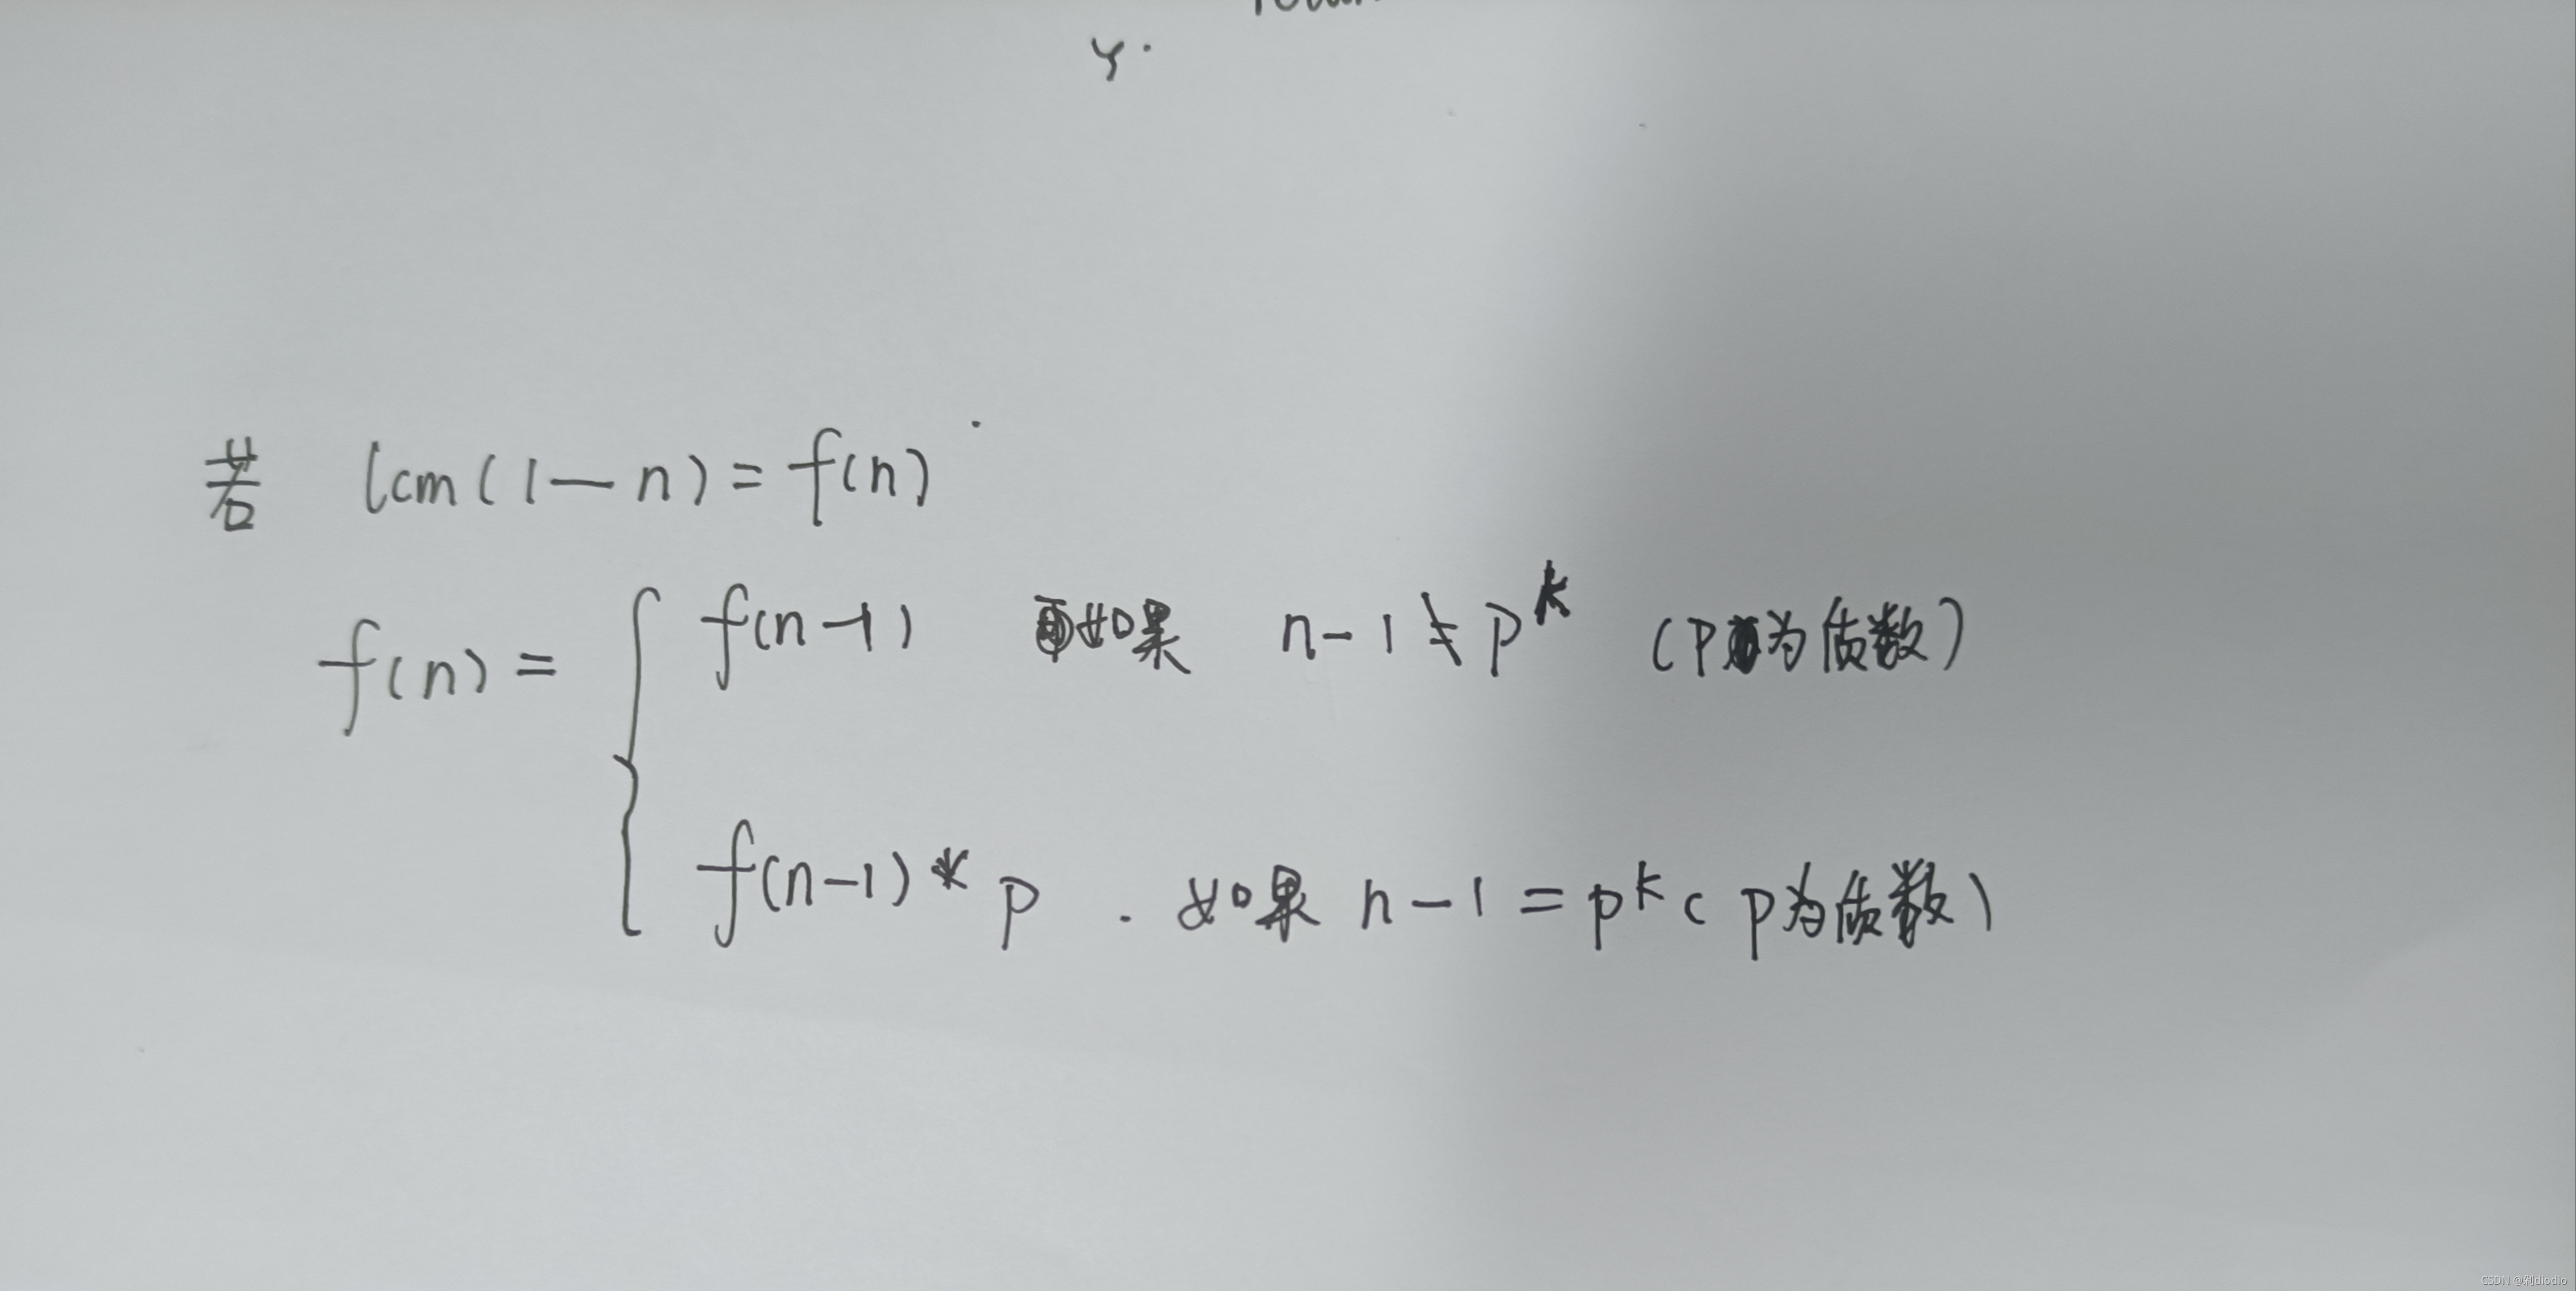 4.
若 lcm(1—n)=f(n)
f(n)= { f(n-1) 如果 n-1≠p^k (p为质数)
f(n-1)*p . 如果 n-1=p^k(p为质数)
CSDN @剁diodio